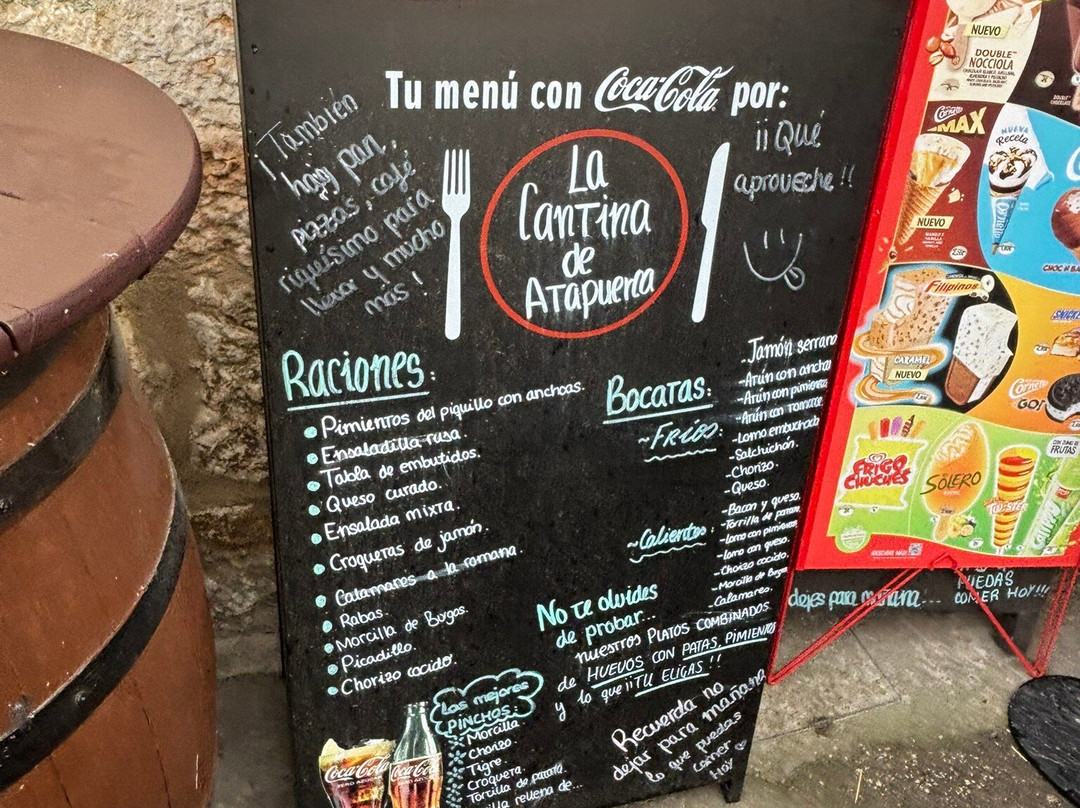 Tu menú con Coca-Cola por:
¡También
hay pan,
pizzas, café
riquísimo para
llevar y mucho
más!
La
Cantina
de
Atapuerca
¡¡Qué
aproveche!!
Raciones:
Pimientos del piquillo con anchoas.
Ensaladilla rusa.
Tabla de embutidos.
Queso curado.
Ensalada mixta.
Croquetas de jamón.
Calamares a la romana.
Rabas.
Morcilla de Burgos.
Picadillo.
Chorizo cocido.
Bocatas:
~Fríos:
-Jamón serrano
-Atún con
-Atún con
-Atún con tomate
-Lomo embuchado
-Salchichón.
-Chorizo.
-Queso.
~Calientes:
-Bacon y queso.
-Tortilla de patata.
-Lomo con pimientos
-Lomo con queso.
-Chorizo cocido.
-Morcilla de Burgos
-Calamares.
No te olvides
de probar...
nuestros PLATOS COMBINADOS
de HUEVOS CON PATAS, PIMIENTOS
y lo que ¡¡TU ELIGAS!!
Recuerda no
dejar para mañana
lo que puedas
comer
Hoy
Las mejores
PINCHOS:
Morcilla
Chorizo.
Tigre.
Croqueta.
Tortilla de patata.
rellena de...
Coca-Cola
Coca-Cola
NUEVO
DOUBLE
NOCCIOLA
Cornetto
MAX
NUEVO
NUEVA
Receta
CHOC'N BA
Filipinos
CARAMEL
NUEVO
SNICKE
Cornetto
GO!
FRIGO
CHUCHES
SOLERO
TWISTER
FRUTAS
Calippo
dejes para mañana...
PUEDAS
COMER HOY!!!